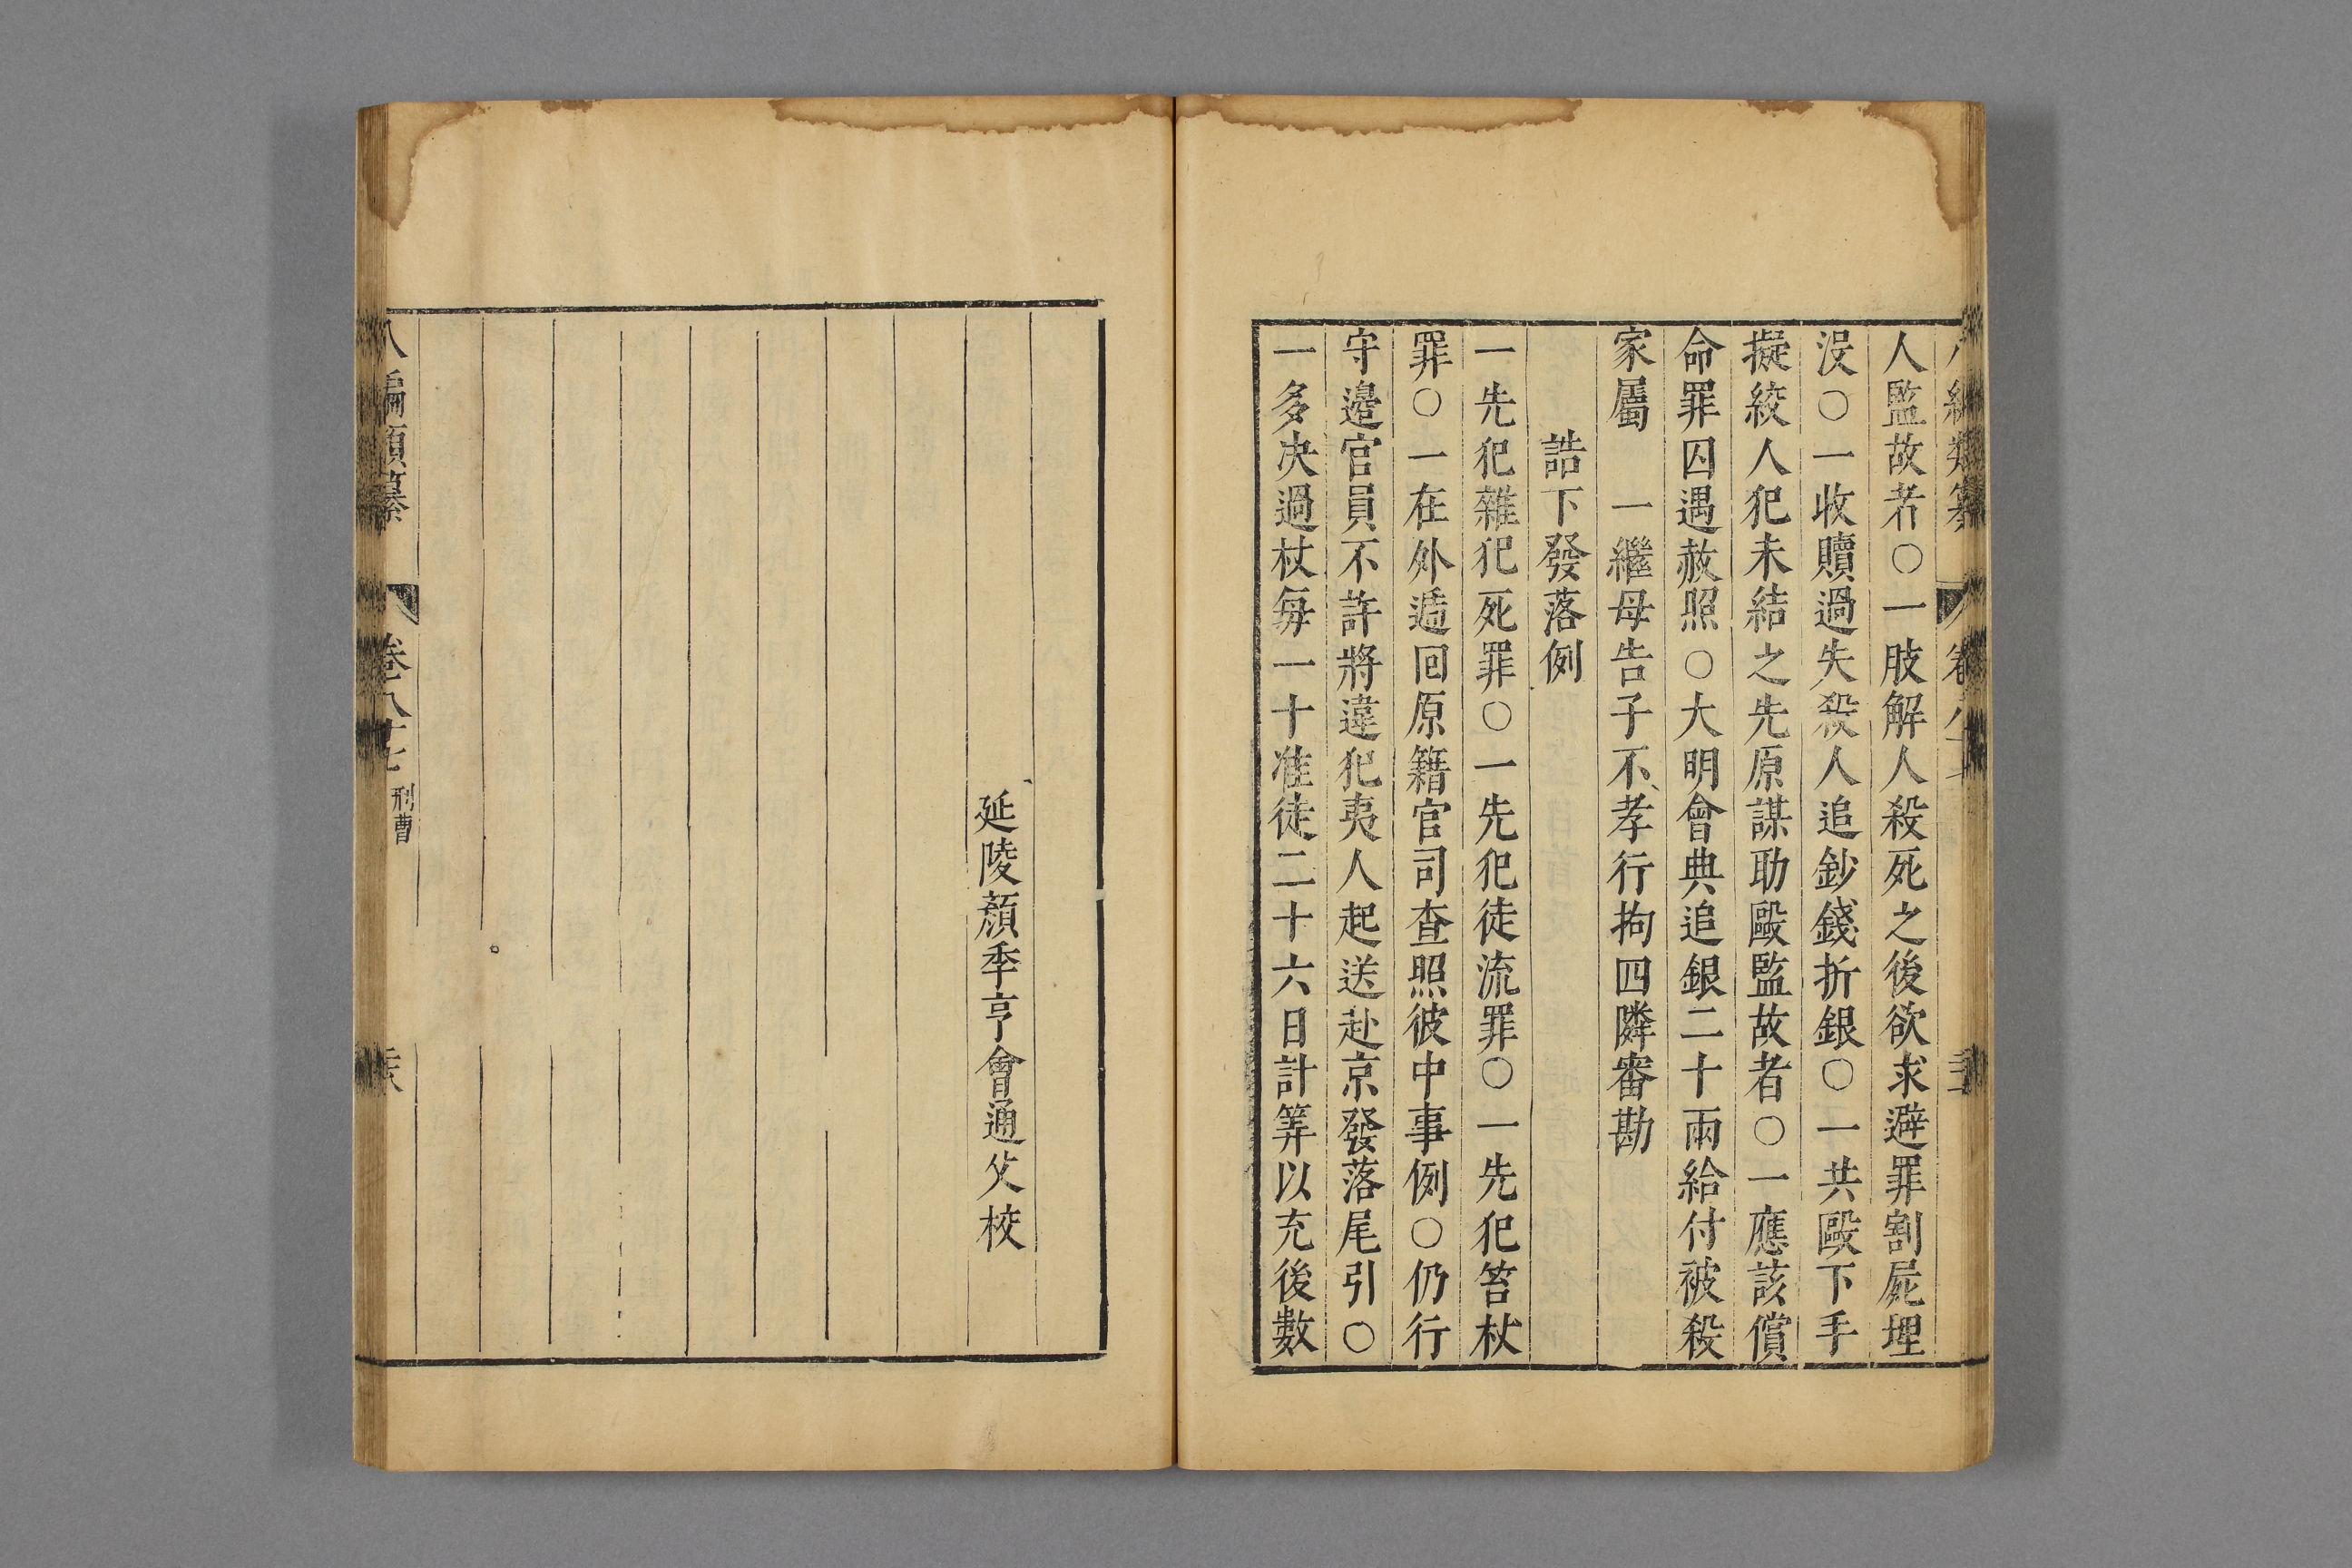 人監故者○一肢解人殺死之後欲求避罪割屍埋
沒○一收贖過失殺人追鈔錢折銀○一共毆下手
擬絞人犯未結之先原謀助毆監故者○一應該償
命罪囚遇赦照○大明會典追銀二十兩給付被殺
家屬　一繼母告子不孝行拘四隣審勘
誥下發落例
一先犯雜犯死罪○一先犯徒流罪○一先犯笞杖
罪○一在外遞囘原籍官司查照彼中事例○仍行
守邊官員不許將違犯夷人起送赴京發落尾引○
一多决過杖每一十准徒二十六日計筭以充後數
延陵顏季亨會通父校
八編類纂
刑曹